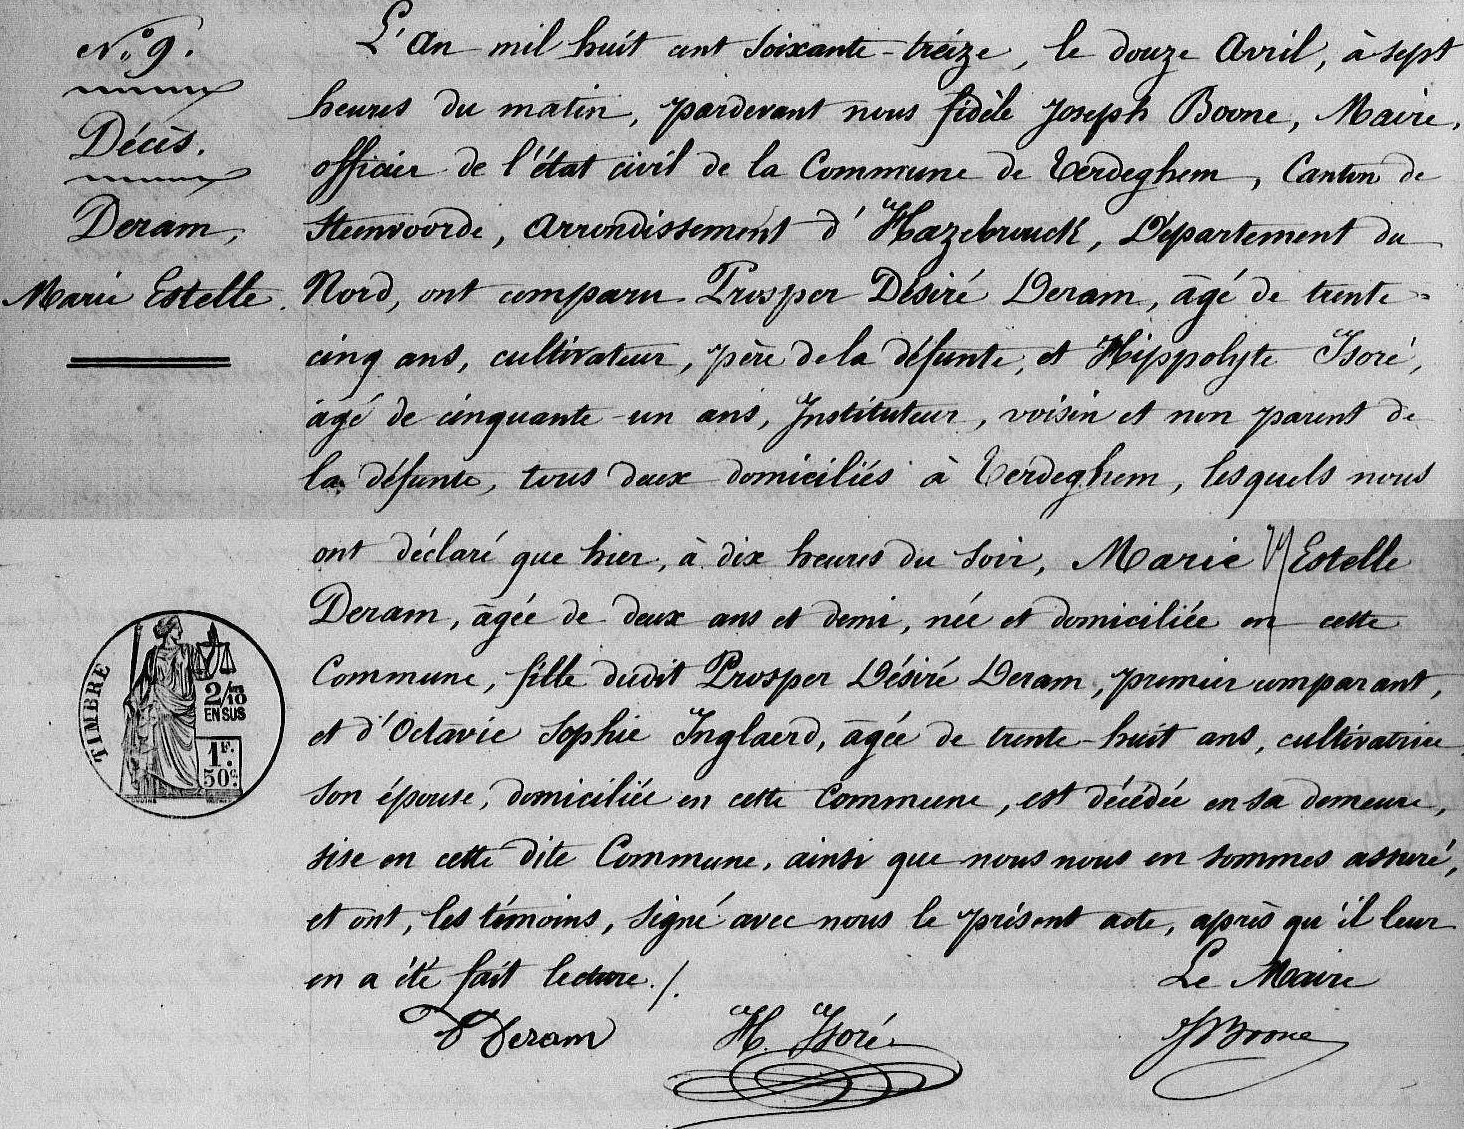 N.° 9.
Décès.
Deram,
Marie Estelle.
L'an mil huit cent soixante-treize, le douze Avril, à sept
heures du matin, pardevant nous fidèle Joseph Boone, Maire,
officier de l'état civil de la Commune de Terdeghem, Canton de
Steenvoorde, arrondissement d'Hazebrouck, Département du
Nord, ont comparu Prosper Désiré Deram, âgé de trente-
cinq ans, cultivateur, père de la défunte, et Hippolyte Isoré,
âgé de cinquante-un ans, Instituteur, voisin et non parent de
la défunte, tous deux domiciliés à Terdeghem, lesquels nous
ont déclaré que hier, à dix heures du soir, Marie Estelle
Deram, âgée de deux ans et demi, née et domiciliée en cette
Commune, fille dudit Prosper Désiré Deram, premier comparant,
et d'Octavie Sophie Inglaerd, âgée de trente-huit ans, cultivatrice,
son épouse, domiciliée en cette Commune, est décédée en sa demeure,
sise en cette dite Commune, ainsi que nous nous en sommes assuré,
et ont, les témoins, signé avec nous le présent acte, après qu'il leur
en a été fait lecture./.
Le Maire
D Deram H. Isoré JBoone
TIMBRE
2/10es
EN SUS
1F.
50c.